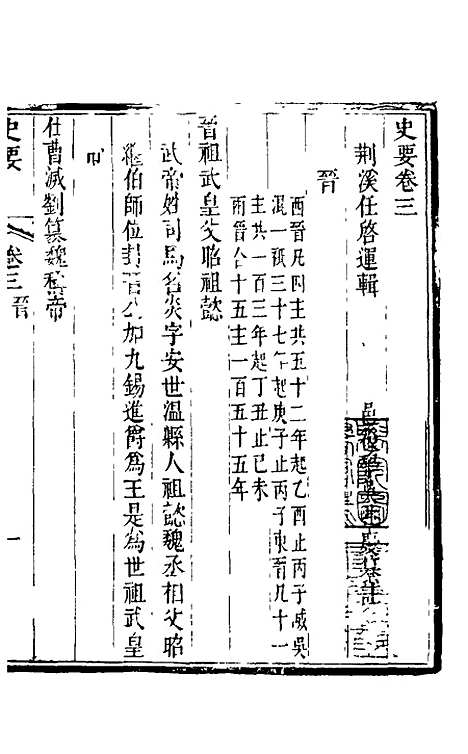 史要卷三
荆溪任啓運輯
晉
西晉凡四主共五十二年起乙酉止丙子滅吳
混一秖三十七年起庚子止丙子東晉凡十一
主共一百三年起丁丑止己未
兩晉合十五主一百五十五年
晉祖武皇父昭祖懿
武帝姓司馬名炎字安世溫縣人祖懿魏丞相父昭
繼伯師位封晉公加九錫進爵爲王是爲世祖武皇
帝
仕曹滅劉篡魏稱帝
史要
卷三 晉
一